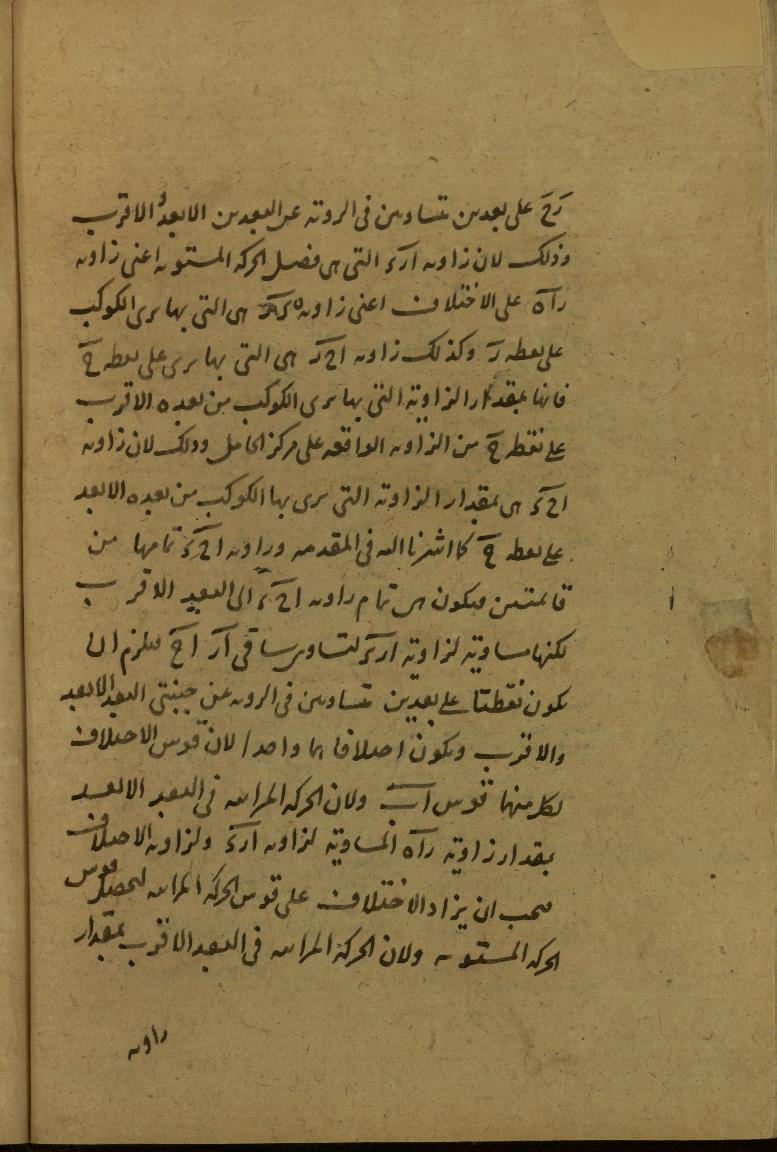 رح على بعدين متساويين في الروية عن البعدين الابعد والاقرب
وذلك لان زاوية ارء التي هي فضل الحركة المستوية اعني زاوية
راه على الاختلاف اعني زاوية هي التي بها يرى الكوكب
على نقطة ر وكذلك زاوية هي التي بها يرى على نقطة ح
فانها بمقدار الزاوية التي بها يرى الكوكب من بعده الاقرب
على نقطة ح من الزاوية الواقعة على مركز الحامل وذلك لان زاوية
احء هي بمقدار الزاوية التي يرى بها الكوكب من بعده الابعد
على نقطة ح كما اشرنا اليه في المقدمة وزاوية احء تمامها من
قائمتين فيكون هي تمام زاوية احء الى البعد الاقرب
لكنها مساوية لزاوية ارء لتساوي ساقي ار اح فيلزم ان
يكون نقطتا على بعدين متساويين في الروية عن جنبتي البعد الابعد
والاقرب ويكون اختلافاهما واحدا لان قوس الاختلاف
لكل منهما قوس اب ولان الحركة المرايية في البعد الابعد
بمقدار زاوية راه المساوية لزاوية ارء ولزاوية الاختلاف
فيجب ان يزاد الاختلاف على قوس الحركة المرايية ليحصل قوس
الحركة المستوية ولان الحركة المرايية في البعد الاقرب بمقدار
زاوية